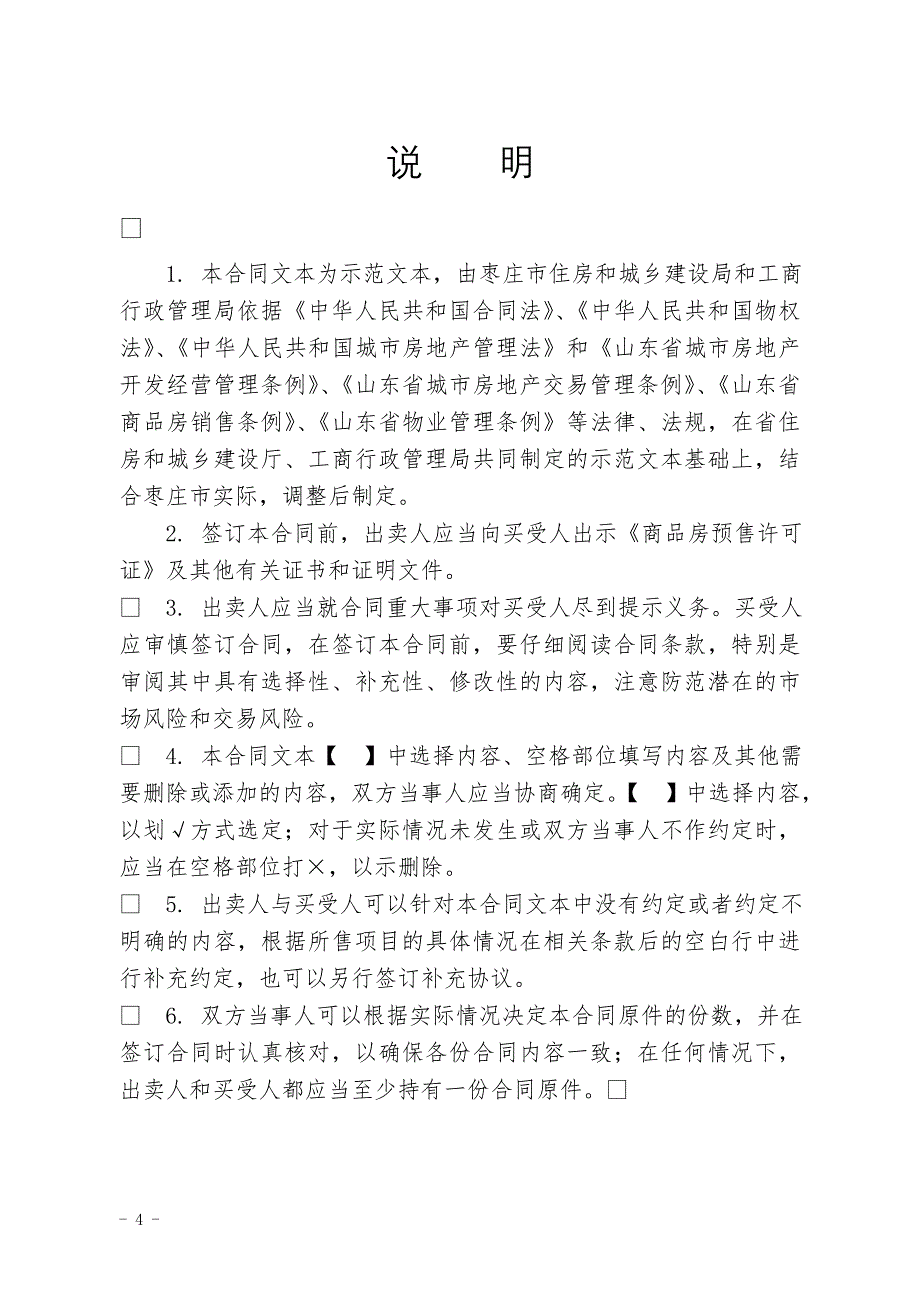 说 明
□
1. 本合同文本为示范文本，由枣庄市住房和城乡建设局和工商
行政管理局依据《中华人民共和国合同法》、《中华人民共和国物权
法》、《中华人民共和国城市房地产管理法》和《山东省城市房地产
开发经营管理条例》、《山东省城市房地产交易管理条例》、《山东省
商品房销售条例》、《山东省物业管理条例》等法律、法规，在省住
房和城乡建设厅、工商行政管理局共同制定的示范文本基础上，结
合枣庄市实际，调整后制定。
2. 签订本合同前，出卖人应当向买受人出示《商品房预售许可
证》及其他有关证书和证明文件。
□ 3. 出卖人应当就合同重大事项对买受人尽到提示义务。买受人
应审慎签订合同，在签订本合同前，要仔细阅读合同条款，特别是
审阅其中具有选择性、补充性、修改性的内容，注意防范潜在的市
场风险和交易风险。
□ 4. 本合同文本【 】中选择内容、空格部位填写内容及其他需
要删除或添加的内容，双方当事人应当协商确定。【 】中选择内容，
以划√方式选定；对于实际情况未发生或双方当事人不作约定时，
应当在空格部位打×，以示删除。
□ 5. 出卖人与买受人可以针对本合同文本中没有约定或者约定不
明确的内容，根据所售项目的具体情况在相关条款后的空白行中进
行补充约定，也可以另行签订补充协议。
□ 6. 双方当事人可以根据实际情况决定本合同原件的份数，并在
签订合同时认真核对，以确保各份合同内容一致；在任何情况下，
出卖人和买受人都应当至少持有一份合同原件。□
- 4 -